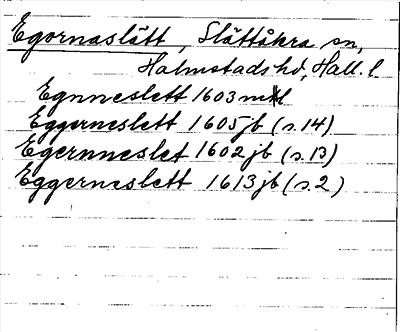 Egornaslätt, Slättåkra sn,
Halmstads hd, Hall. l.
Egnneslett 1603 mtl
Eggerneslett 1605 jb (s. 14)
Egernneslet 1602 jb (s. 13)
Eggerneslett 1613 jb (s. 2)